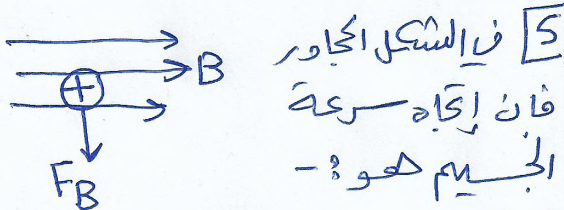 5 في الشكل المجاور
فان إتجاه سرعة
الجسيم هو :-
B
+
FB